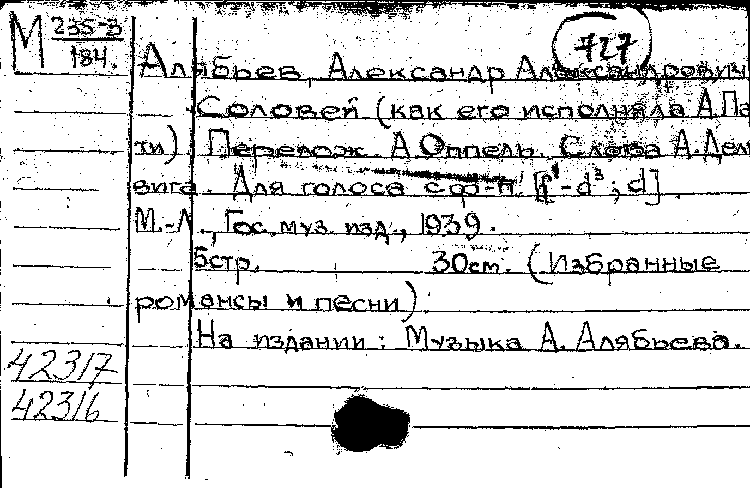 М 235-3
184.
727
Алябьев, Александр Александрович
Соловей (как его исполняла А.Па
ти). Перелож. А Оппель. Слова А.Дель
вига. Для голоса с ф-п. [f¹-d³; d].
М.-Л., Гос. муз. изд., 1939.
5стр. 30см. (Избранные
романсы и песни).
На издании: Музыка А. Алябьева.
42317
42316